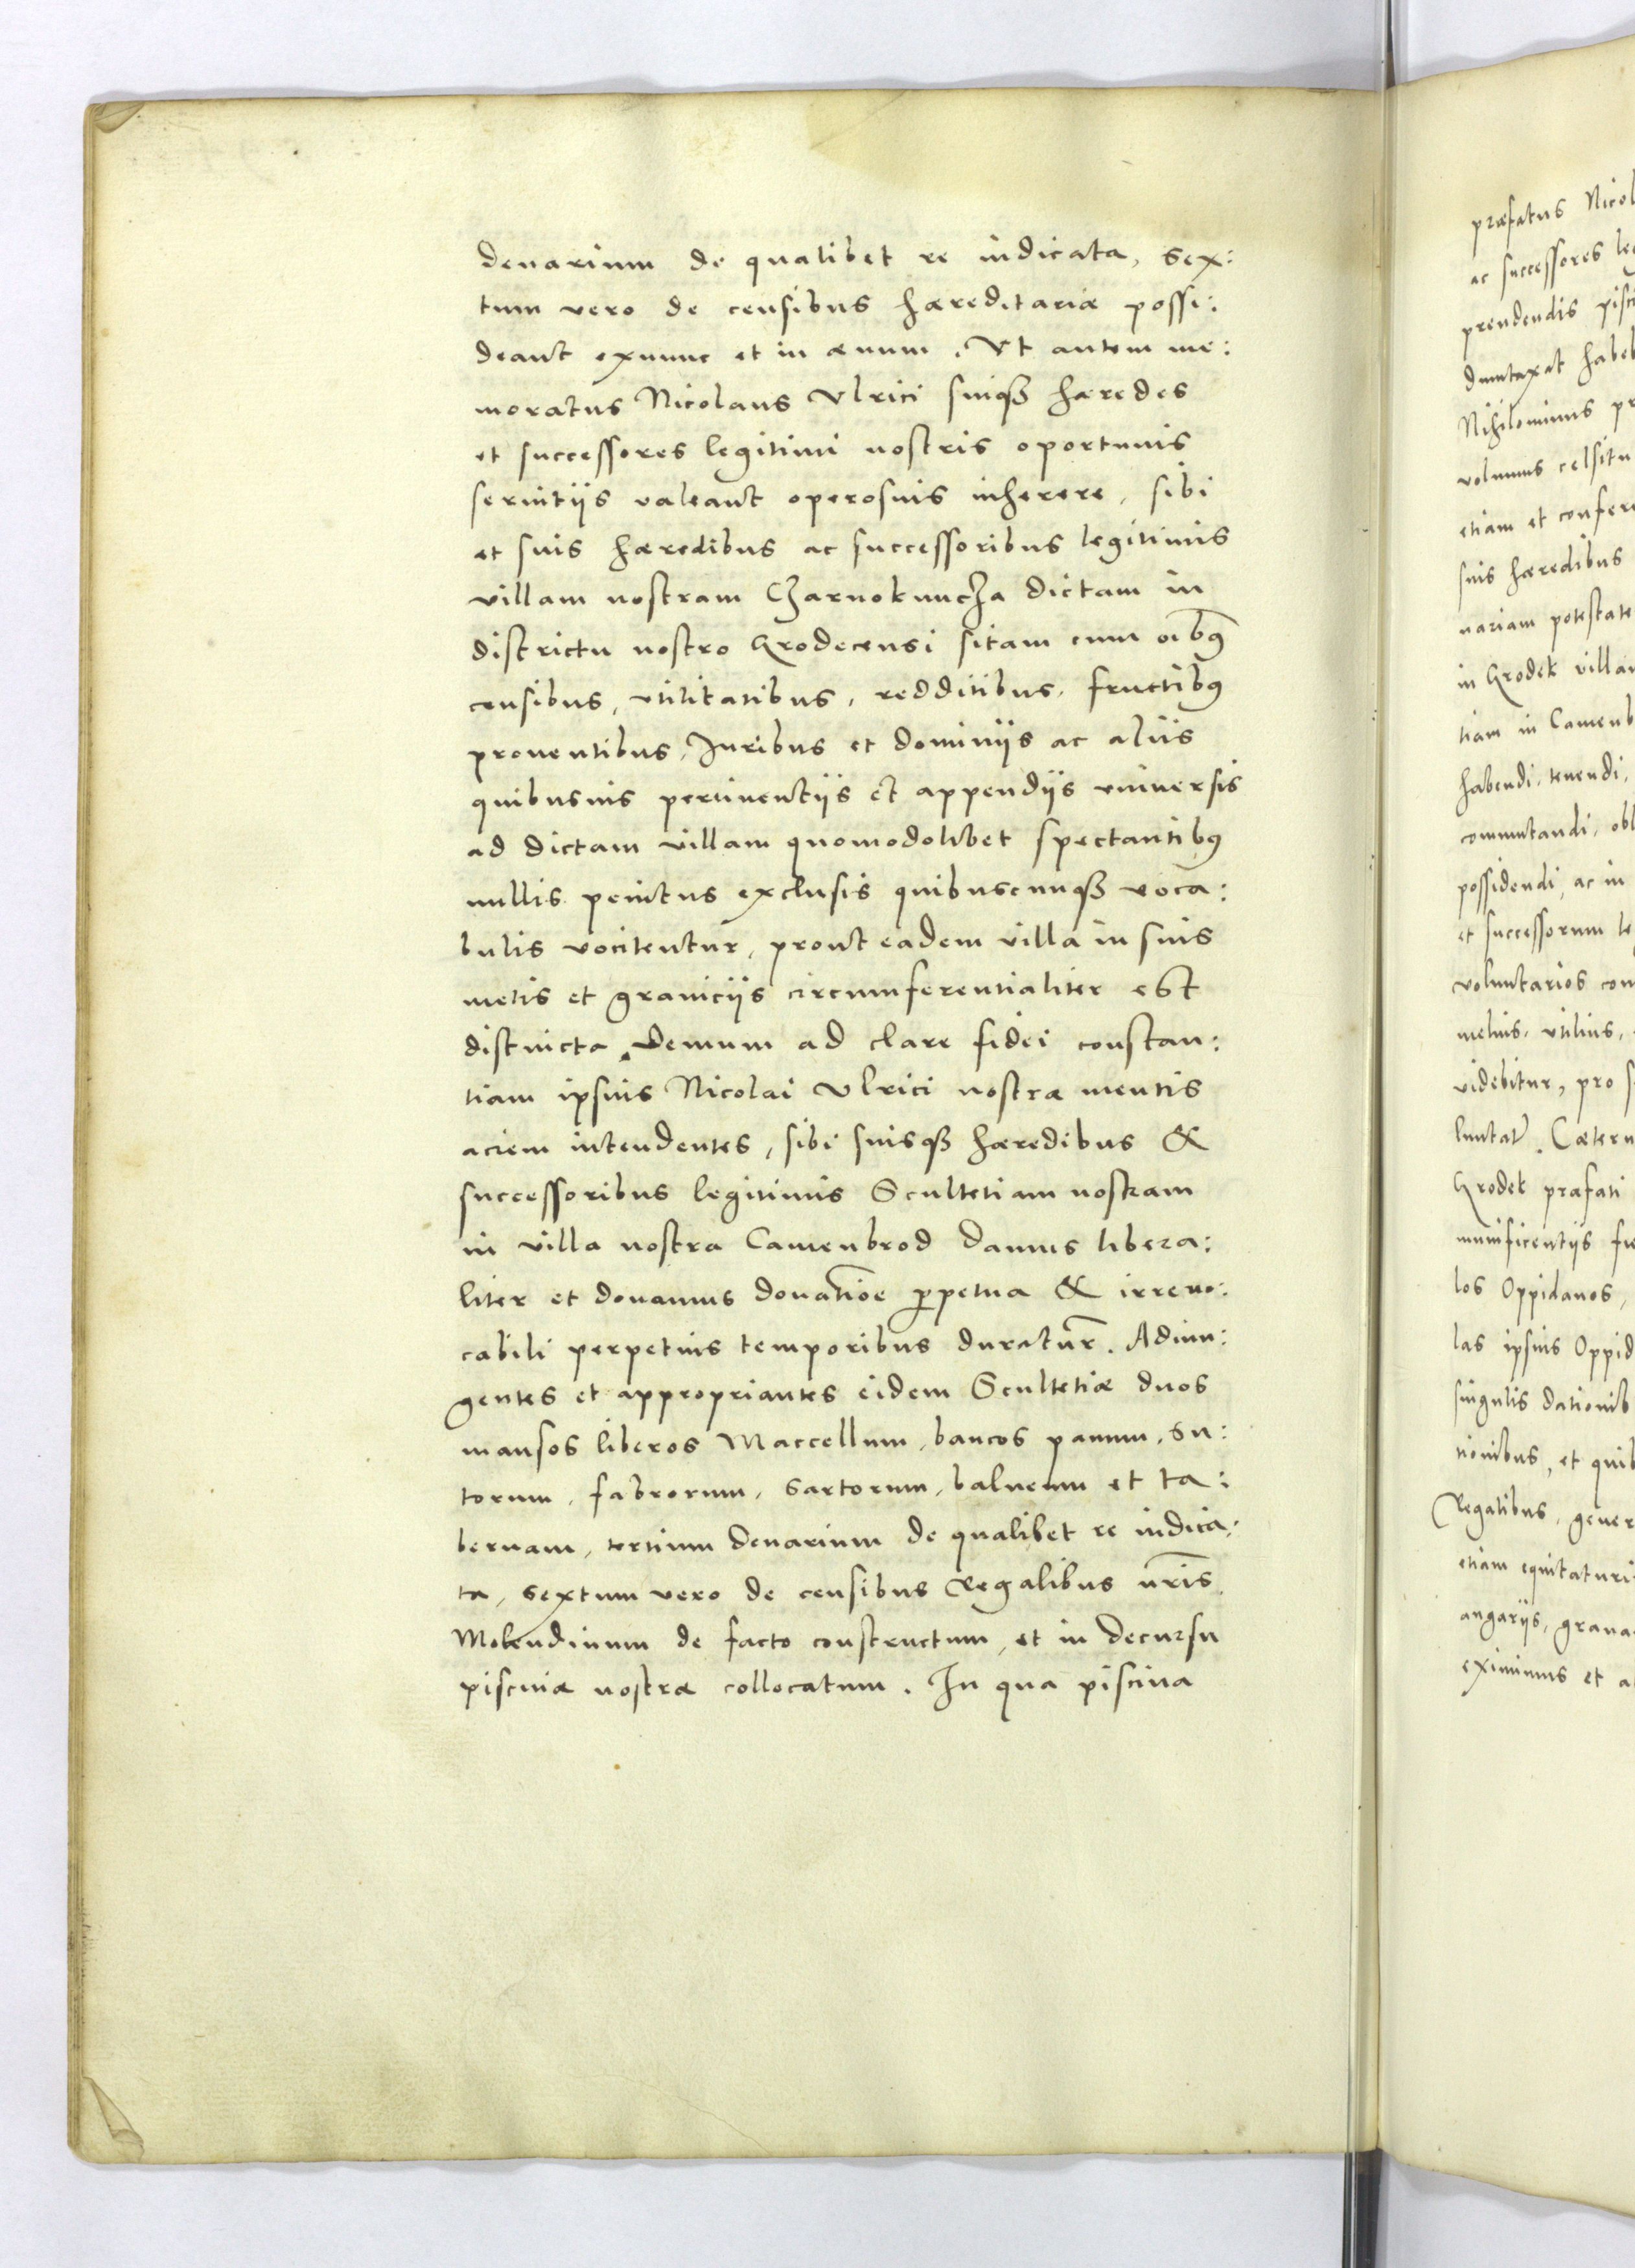 denarium de qualibet re iudicata, sex:
tum vero de censibus hæreditariæ possi:
deant exnunc et in æuum. Vt autem me:
moratus Nicolaus Vlrici suiqȝ hæredes
et successores legitimi nostris oportunis
seruitijs valeant operosius inherere, sibi
et suis hæredibus ac successoribus legitimis
villam nostram Czarnokuncza dictam in
districtu nostro Grodecensi sitam cum oībꝰ
censibus, vtilitatibus, redditibus, fructibꝰ
prouentibus, Juribus et dominijs ac alijs
quibusuis pertinentijs et appendijs vniuersis
ad dictam villam quomodolibet spectantibꝰ
nullis penitus exclusis quibuscunqȝ voca:
bulis vocitentur, prout eadem villa in suis
metis et granicijs circumferentialiter est
distincta. Demum ad claræ fidei constan:
tiam ipsius Nicolai Vlrici nostræ mentis
aciem intendentes, sibi suisqȝ hæredibus &
successoribus legitimis Scultetiam nostram
in villa nostra Camenbrod damus libera:
liter et donamus donatiōe ꝑpetua & irreuo:
cabili perpetuis temporibus duratur̄. Adiun:
gentes et appropriantes eidem Scultetiæ duos
mansos liberos Maccellum, bancos panum, Su:
torum, fabrorum, Sartorum, balneum et ta:
bernam, tertium denarium de qualibet re iudica:
ta, Sextum vero de censibus Regalibus nr̄is
Molendinum de facto constructum, et in decursu
piscinæ nostræ collocatum. In qua piscina
præfatus
ac successores
prendendis
duntaxat
Nihilominus
volumus
etiam et
suis hæredibus
nariam
in Grodek
tiam in
habendi, tenendi,
commutandi,
possidendi, ac in
et successorum
voluntarios
melius, vtilius,
videbitur, pro
Grodek præfati
munificentijs
los Oppidanos,
las ipsius
singulis
tionibus, et
Regalibus,
etiam
angarijs,
eximimus et